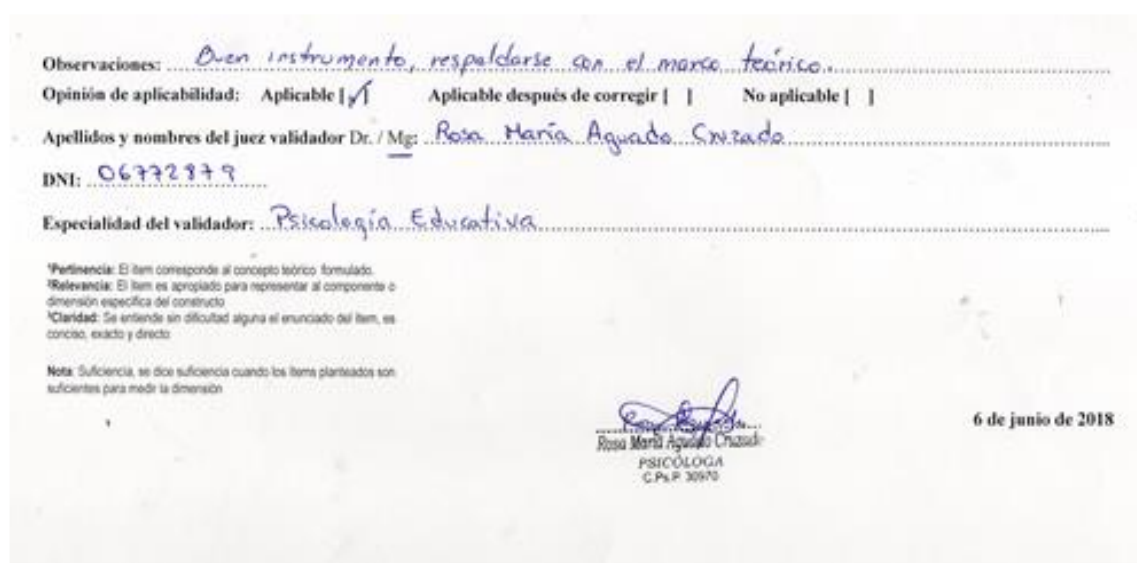 Observaciones: Buen instrumento, respaldarse con el marco teórico.
Opinión de aplicabilidad: Aplicable [✓] Aplicable después de corregir [ ] No aplicable [ ]
Apellidos y nombres del juez validador Dr. / Mg: Rosa María Aguado Cruzado
DNI: 06772879
Especialidad del validador: Psicología Educativa
¹Pertinencia: El ítem corresponde al concepto teórico formulado.
²Relevancia: El ítem es apropiado para representar al componente o
dimensión específica del constructo
³Claridad: Se entiende sin dificultad alguna el enunciado del ítem, es
conciso, exacto y directo
Nota: Suficiencia, se dice suficiencia cuando los ítems planteados son
suficientes para medir la dimensión
6 de junio de 2018
Rosa María Aguado Cruzado
PSICÓLOGA
C.Ps.P. 30970